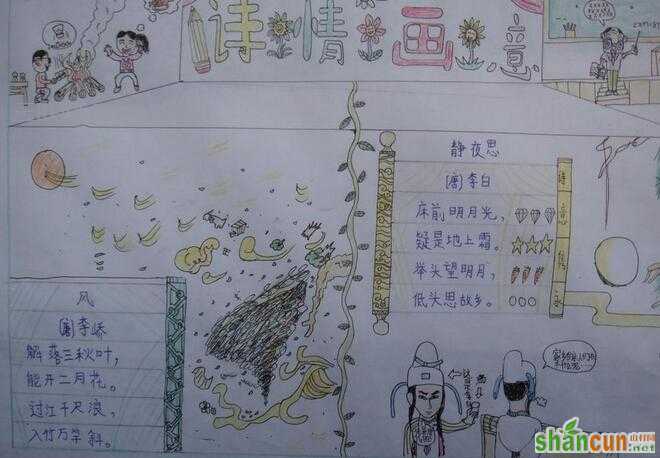 诗情画意
静夜思
[唐]李白
床前明月光，
疑是地上霜。
举头望明月，
低头思故乡。
风
[唐]李峤
解落三秋叶，
能开二月花。
过江千尺浪，
入竹万竿斜。
shancun
.net